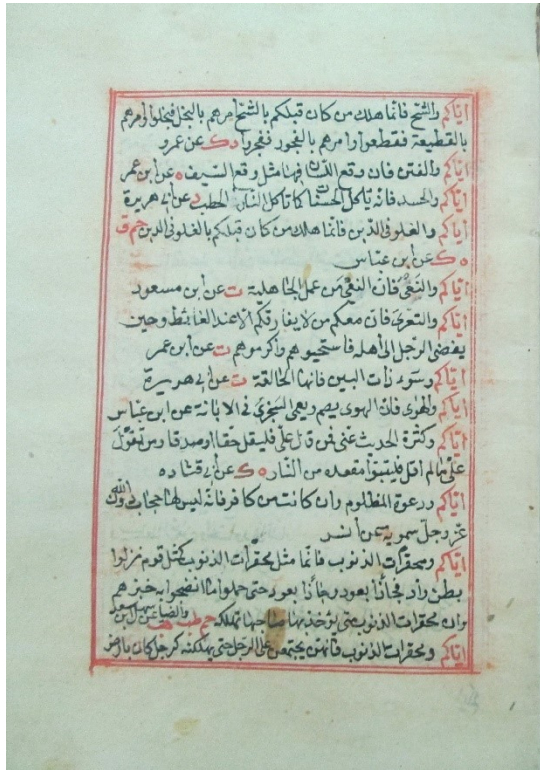 اياكم والشح فانما هلك من كان قبلكم بالشح امرهم بالبخل فبخلوا وامرهم
بالقطيعة فقطعوا وامرهم بالفجور ففجروا د ك عن عمرو
اياكم والفتن فان وقع اللسان فيها مثل وقع السيف ه عن ابن عمر
اياكم والحسد فانه ياكل الحسنات كما تاكل النار الحطب د عن ابي هريرة
اياكم والغلو في الدين فانما هلك من كان قبلكم بالغلو في الدين حم ق
ه ك عن ابن عباس
اياكم والنعي فان النعي من عمل الجاهلية ت عن ابن مسعود
اياكم والتعري فان معكم من لا يفارقكم الا عند الغائط وحين
يفضي الرجل الى اهله فاستحيوهم واكرموهم ت عن ابن عمر
اياكم وسوء ذات البين فانها الحالقة ت عن ابي هريرة
اياكم والهوى فان الهوى يصم ويعمي السجزي في الابانة عن ابن عباس
اياكم وكثرة الحديث عني فمن قال علي فليقل حقا او صدقا ومن تقول
علي ما لم اقل فليتبوأ مقعده من النار ه ك عن ابي قتاده
اياكم ودعوة المظلوم وان كانت من كافر فانه ليس لها حجاب دون الله
عز وجل سمويه عن انس
اياكم ومحقرات الذنوب فانما مثل محقرات الذنوب كمثل قوم نزلوا
بطن واد فجاء ذا بعود وجاء ذا بعود حتى حملوا ما انضجوا به خبزهم
وان محقرات الذنوب متى يؤخذ بها صاحبها تهلكه حم طب هب والضيا عن سهل بن سعد
اياكم ومحقرات الذنوب فانهن يجتمعن على الرجل حتى يهلكنه كرجل كان بارض